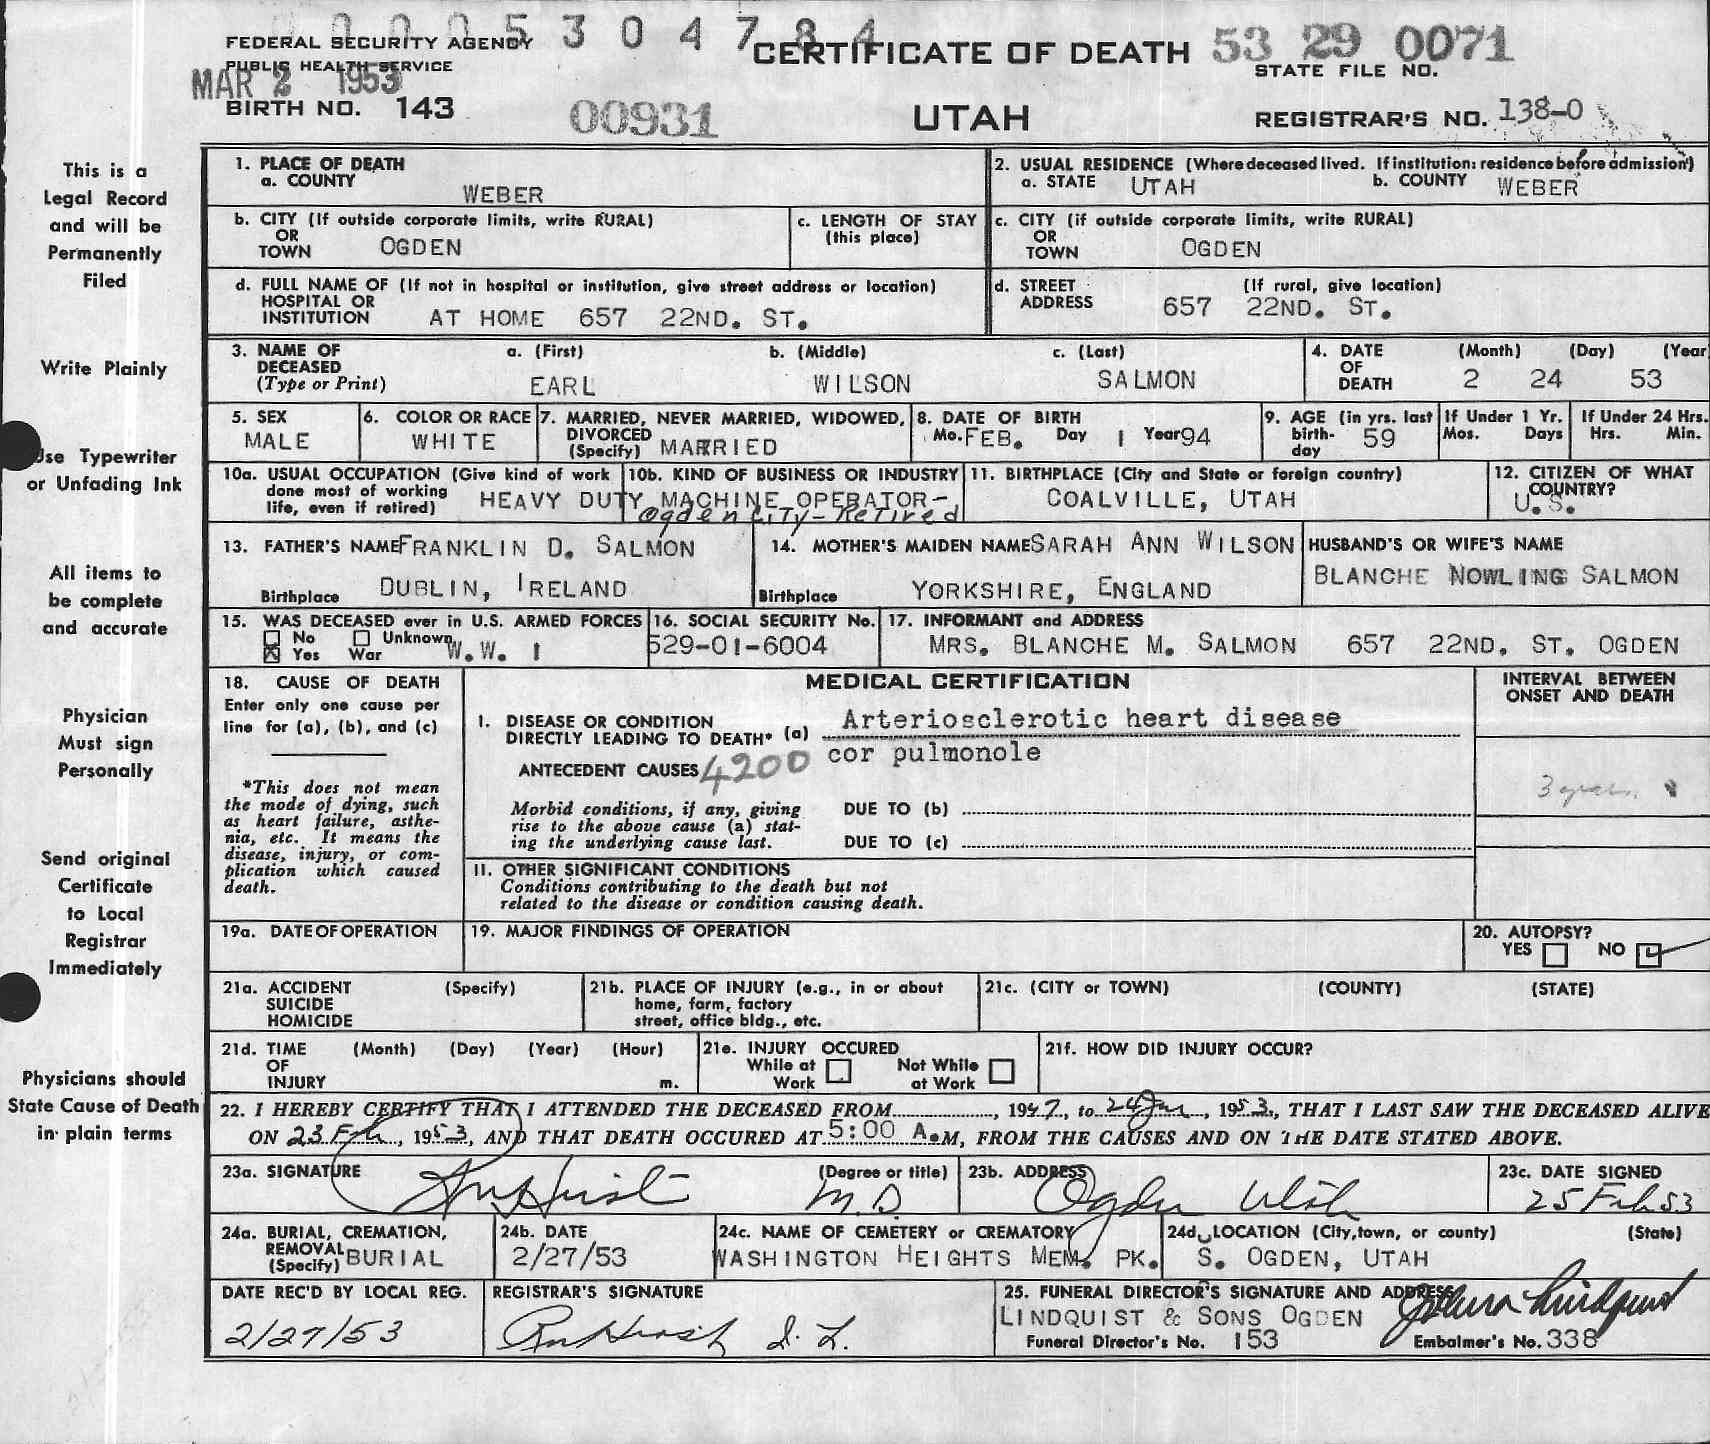 0 0 0 5 3 0 4 7 8 4
FEDERAL SECURITY AGENCY
PUBLIC HEALTH SERVICE
MAR 2 1953
BIRTH NO. 143
00931
CERTIFICATE OF DEATH
UTAH
53 29 0071
STATE FILE NO.
REGISTRAR'S NO. 138-0
This is a
Legal Record
and will be
Permanently
Filed
Write Plainly
Use Typewriter
or Unfading Ink
All items to
be complete
and accurate
Physician
Must sign
Personally
Send original
Certificate
to Local
Registrar
Immediately
Physicians should
State Cause of Death
in plain terms
1. PLACE OF DEATH
a. COUNTY WEBER
2. USUAL RESIDENCE (Where deceased lived. If institution: residence before admission)
a. STATE UTAH b. COUNTY WEBER
b. CITY (If outside corporate limits, write RURAL)
OR
TOWN OGDEN
c. LENGTH OF STAY
(this place)
c. CITY (if outside corporate limits, write RURAL)
OR
TOWN OGDEN
d. FULL NAME OF (If not in hospital or institution, give street address or location)
HOSPITAL OR
INSTITUTION AT HOME 657 22ND. ST.
d. STREET (If rural, give location)
ADDRESS 657 22ND. ST.
3. NAME OF a. (First) b. (Middle) c. (Last)
DECEASED
(Type or Print) EARL WILSON SALMON
4. DATE (Month) (Day) (Year
OF
DEATH 2 24 53
5. SEX
MALE
6. COLOR OR RACE
WHITE
7. MARRIED, NEVER MARRIED, WIDOWED,
DIVORCED
(Specify) MARRIED
8. DATE OF BIRTH
Mo. FEB. Day 1 Year 94
9. AGE (in yrs. last
birth-
day 59
If Under 1 Yr.
Mos. Days
If Under 24 Hrs.
Hrs. Min.
10a. USUAL OCCUPATION (Give kind of work
done most of working
life, even if retired)
10b. KIND OF BUSINESS OR INDUSTRY
HEAVY DUTY MACHINE OPERATOR-
Ogden City-Retired
11. BIRTHPLACE (City and State or foreign country)
COALVILLE, UTAH
12. CITIZEN OF WHAT
COUNTRY?
U.S.
13. FATHER'S NAME FRANKLIN D. SALMON
Birthplace DUBLIN, IRELAND
14. MOTHER'S MAIDEN NAME SARAH ANN WILSON
Birthplace YORKSHIRE, ENGLAND
HUSBAND'S OR WIFE'S NAME
BLANCHE NOWLING SALMON
15. WAS DECEASED ever in U.S. ARMED FORCES
No Unknown
Yes War W.W. I
16. SOCIAL SECURITY No.
529-01-6004
17. INFORMANT and ADDRESS
MRS. BLANCHE M. SALMON 657 22ND. ST. OGDEN
18. CAUSE OF DEATH
Enter only one cause per
line for (a), (b), and (c)
*This does not mean
the mode of dying, such
as heart failure, asthe-
nia, etc. It means the
disease, injury, or com-
plication which caused
death.
MEDICAL CERTIFICATION
INTERVAL BETWEEN
ONSET AND DEATH
I. DISEASE OR CONDITION
DIRECTLY LEADING TO DEATH* (a) Arteriosclerotic heart disease
cor pulmonole
ANTECEDENT CAUSES 4200
3 years
Morbid conditions, if any, giving
rise to the above cause (a) stat-
ing the underlying cause last.
DUE TO (b)
DUE TO (c)
II. OTHER SIGNIFICANT CONDITIONS
Conditions contributing to the death but not
related to the disease or condition causing death.
19a. DATE OF OPERATION
19. MAJOR FINDINGS OF OPERATION
20. AUTOPSY?
YES NO
21a. ACCIDENT (Specify)
SUICIDE
HOMICIDE
21b. PLACE OF INJURY (e.g., in or about
home, farm, factory
street, office bldg., etc.
21c. (CITY or TOWN) (COUNTY) (STATE)
21d. TIME (Month) (Day) (Year) (Hour)
OF
INJURY m.
21e. INJURY OCCURED
While at Not While
Work at Work
21f. HOW DID INJURY OCCUR?
22. I HEREBY CERTIFY THAT I ATTENDED THE DECEASED FROM , 1947, to 24 , 1953, THAT I LAST SAW THE DECEASED ALIVE
ON 23 Feb, 1953, AND THAT DEATH OCCURED AT 5:00 A.M, FROM THE CAUSES AND ON THE DATE STATED ABOVE.
23a. SIGNATURE (Degree or title)
M.D.
23b. ADDRESS
Ogden Utah
23c. DATE SIGNED
25 Feb 53
24a. BURIAL, CREMATION,
REMOVAL
(Specify) BURIAL
24b. DATE
2/27/53
24c. NAME OF CEMETERY or CREMATORY
WASHINGTON HEIGHTS MEM. PK.
24d. LOCATION (City, town, or county) (State)
S. OGDEN, UTAH
DATE REC'D BY LOCAL REG.
2/27/53
REGISTRAR'S SIGNATURE
25. FUNERAL DIRECTOR'S SIGNATURE AND ADDRESS
LINDQUIST & SONS OGDEN
Funeral Director's No. 153
Embalmer's No. 338